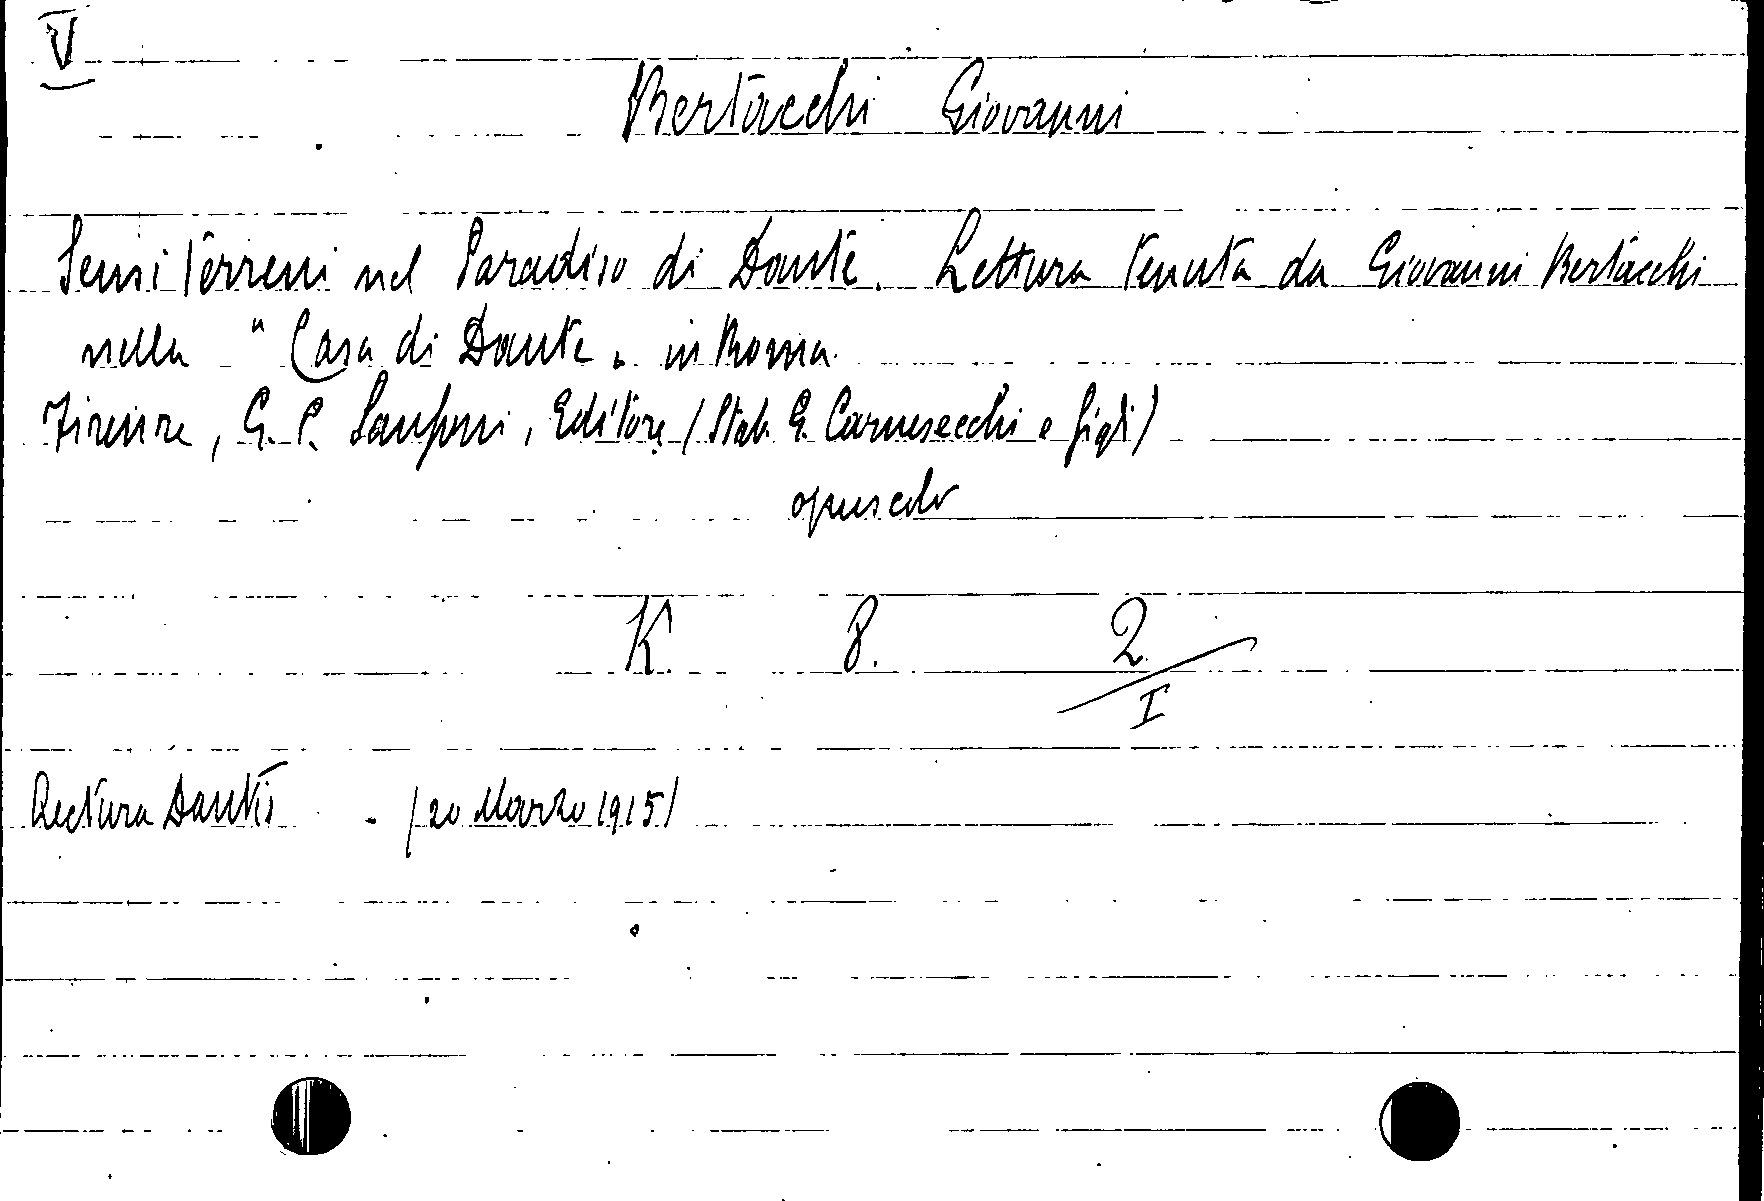 V
Bertacchi Giovanni
Sensi terreni nel Paradiso di Dante. Lettura tenuta da Giovanni Bertacchi
nella " Casa di Dante " in Roma.
Firenze, G. C. Sansoni, Editore (Stab. G. Carnesecchi e figli)
opuscolo
K. 8. 2/I
Lectura Dantis - (20 Marzo 1915)